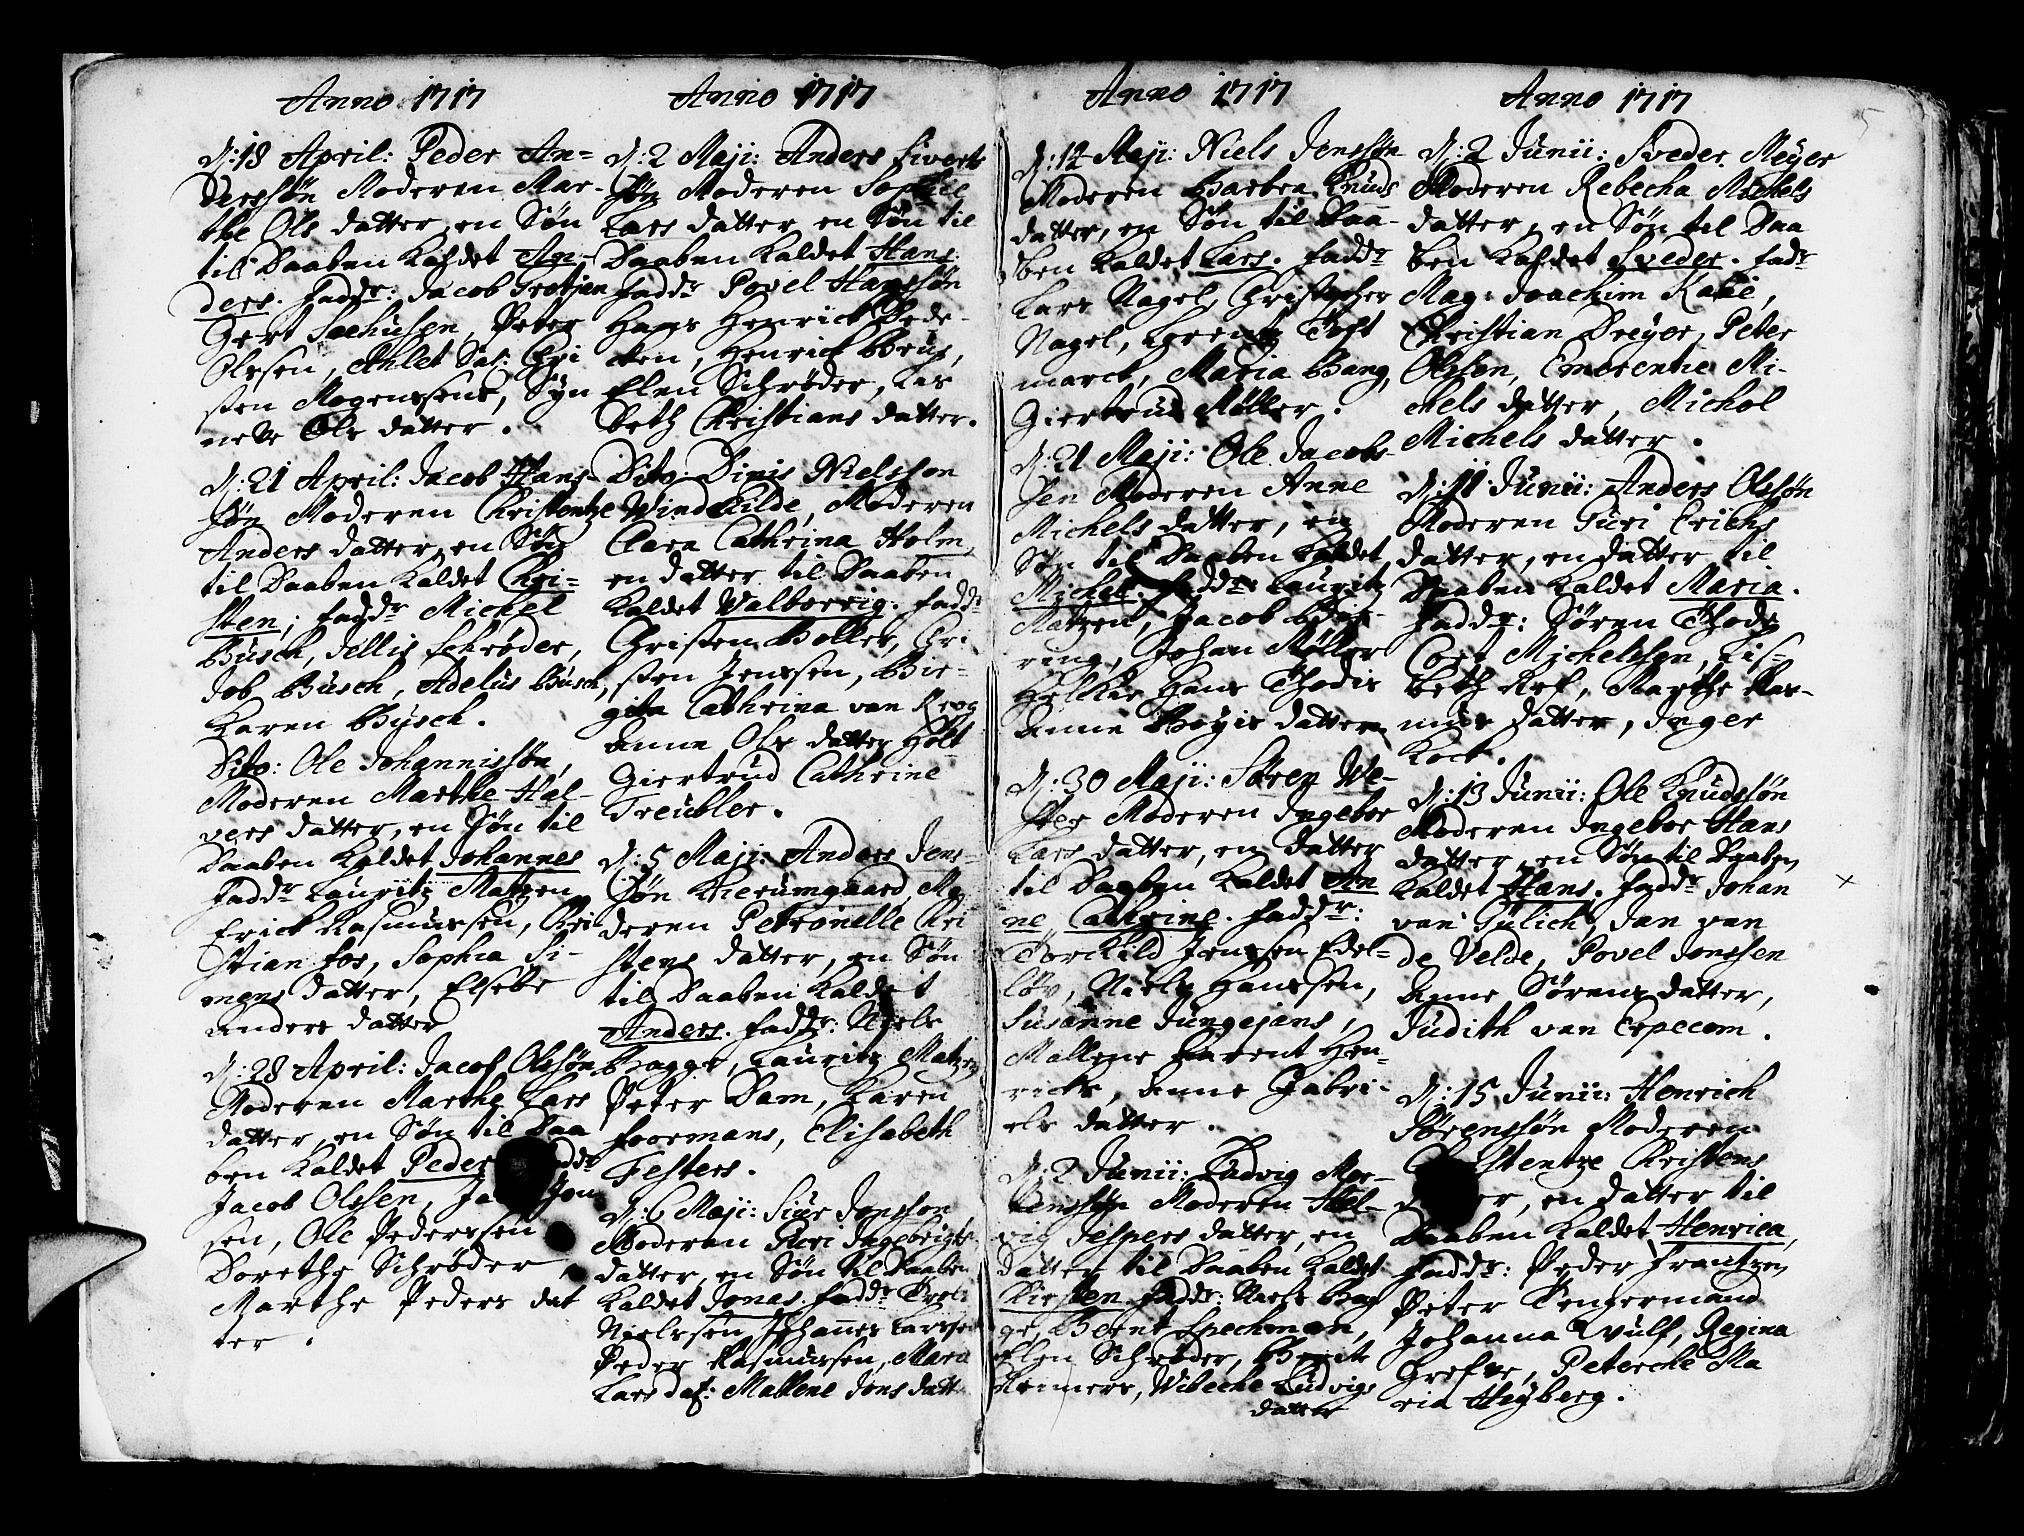 Anno 1717
D: 18 April: Peder An=
dersøn Moderen Mar-
the Ols datter, en Søn
til Daaben kaldet An-
ders. Fadd: Jacob
Gert Seehusen, Peter
Olssen, Chri
sten Mogenssens, Syn
neve Ols datter.
D: 21 April: Jacob Hans-
søn Moderen Christentze
Anders datter, en Søn
til Daaben kaldet Chri=
sten; Fadd Michel
Büsch, Jellis Schrøder,
Job Büsch, Adelus Büsch,
Karen Büsch.
Dito: Ole Johannissøn,
Moderen Marthe Hal-
vers datter, en Søn til
Daaben kaldet Johannes
Fadd Lauritz Matzen
Erick Rasmussen, Chri
stian Fos, Sophia Si-
mens datter, Elsebe
Anders datter
D: 28 April: Jacob Olssøn
Moderen Marthe Lars
datter, en Søn til Daa
ben kaldet Peder
Jacob Olssen, Jon
sen, Ole Pederssen
Dorethe Schrøder,
Marthe Peders dat
ter.
Anno 1717
D: 2 Maji: Anders Siverts
søn Moderen Sophie
Lars datter en Søn til
Daaben kaldet Hans.
Fadd Povel Hanssøn
Hans Henrick Bade-
ken, Henrick
Elen Schrøder, Lis
beth Christians datter.
Dito: Dinis Nielsson
Windekilde, Moderen
Clara Cathrina Holm
en datter til Daaben
kaldet Valborrig. Fadd
Christen Boller, Chri
sten Jenssen, Bir-
gita Cathrina von Krog
Anne Ols datter Holt
Giertrud Cathrine
Treubler.
D: 5 Maji: Anders Jens-
søn Mo
deren Petronelle Chri
stens datter, en Søn
til Daaben kaldet
Anders. Fadd: Niels
Bagge, Lauritz Matzen
Peter Dam, Karen
Foormans, Elisabeth
Festers.
D: 6 Maji: Siur Jonsson
Moderen Guri Ingebrigts
datter, en Søn til Daaben
kaldet Jonas. Fadd
Nielssen Johannes Larssen
Peder Rasmussen, Maria
Lars dat: Mallene Jons datt
Anno 1717
D: 12 Maji: Niels Jenssøn
Moderen Barbra Knuds
datter, en Søn til Daa-
ben kaldet Lars. Fadd
Lars Nagel, Christopher
Nagel, Lorentz Toft
marck, Maria Bang,
Giertrud Møller.
D: 21 Maji: Ole Jacobs-
sen Moderen Anne
Michels datter, en
Søn til Daaben kaldet
Michel. Fadd: Lauritz
Matzen, Jacob
ring, Johan Møller
Hans Thodis
Anne Bøyis datter
D: 30 Maji: Søren We-
ster Moderen Ingebor
Lars datter, en datter
til Daaben kaldet An
ne Cathrine. Fadd:
Torckild Jenssen Edel=
løv, Niels Hanssen,
Susanne Jungejans,
Mallene Hen-
ricks, Anne Gabri-
els datter.
D: 2 Junii: Ludvig Mor-
tenssøn Moderen Hel-
vig Jespers datter, en
datter til Daaben kaldet
Kirsten Fadd: Niels Bag
ge, Bernt Spechman,
Elen Schrøder, Berete
Renners, Wibecke Ludvigs
datter
Anno 1717
5
D: 2 Junii: Sveder Meyer
Moderen Rebecha Michels
datter, en Søn til Daa
ben kaldet Sveder. Fadd
Mag: Joachim
Christian Dreyer, Peter
Olssøn, Emerentie Mi-
chels datter, Michol
Michels datter.
D: 11 Junii: Anders Olssøn
Moderen Guri Erichs
datter, en datter til
Daaben kaldet Maria.
Fadd: Søren Thode
Cort Michelssen, Lis-
beth Marthe Ras-
mus datter, Inger
Kock.
D: 13 Junii: Ole Knudssøn
Moderen Ingebor Hans
datter, en Søn til Daaben
kaldet Hans. Fadd Johan
van Gülich, Jan van
de Velde, Povel Jonssen
Anne Sørens datter,
Judith van Erpecom.
D: 15 Junii: Henrich
Sørenssøn Moderen
Christentze Christens
datter, en datter til
Daaben kaldet Henrica,
Fadd: Peder Frantzen
Peter Tengermand
Johanna Wulf, Regina
Grefve, Peterche Ma
ria Heyberg.